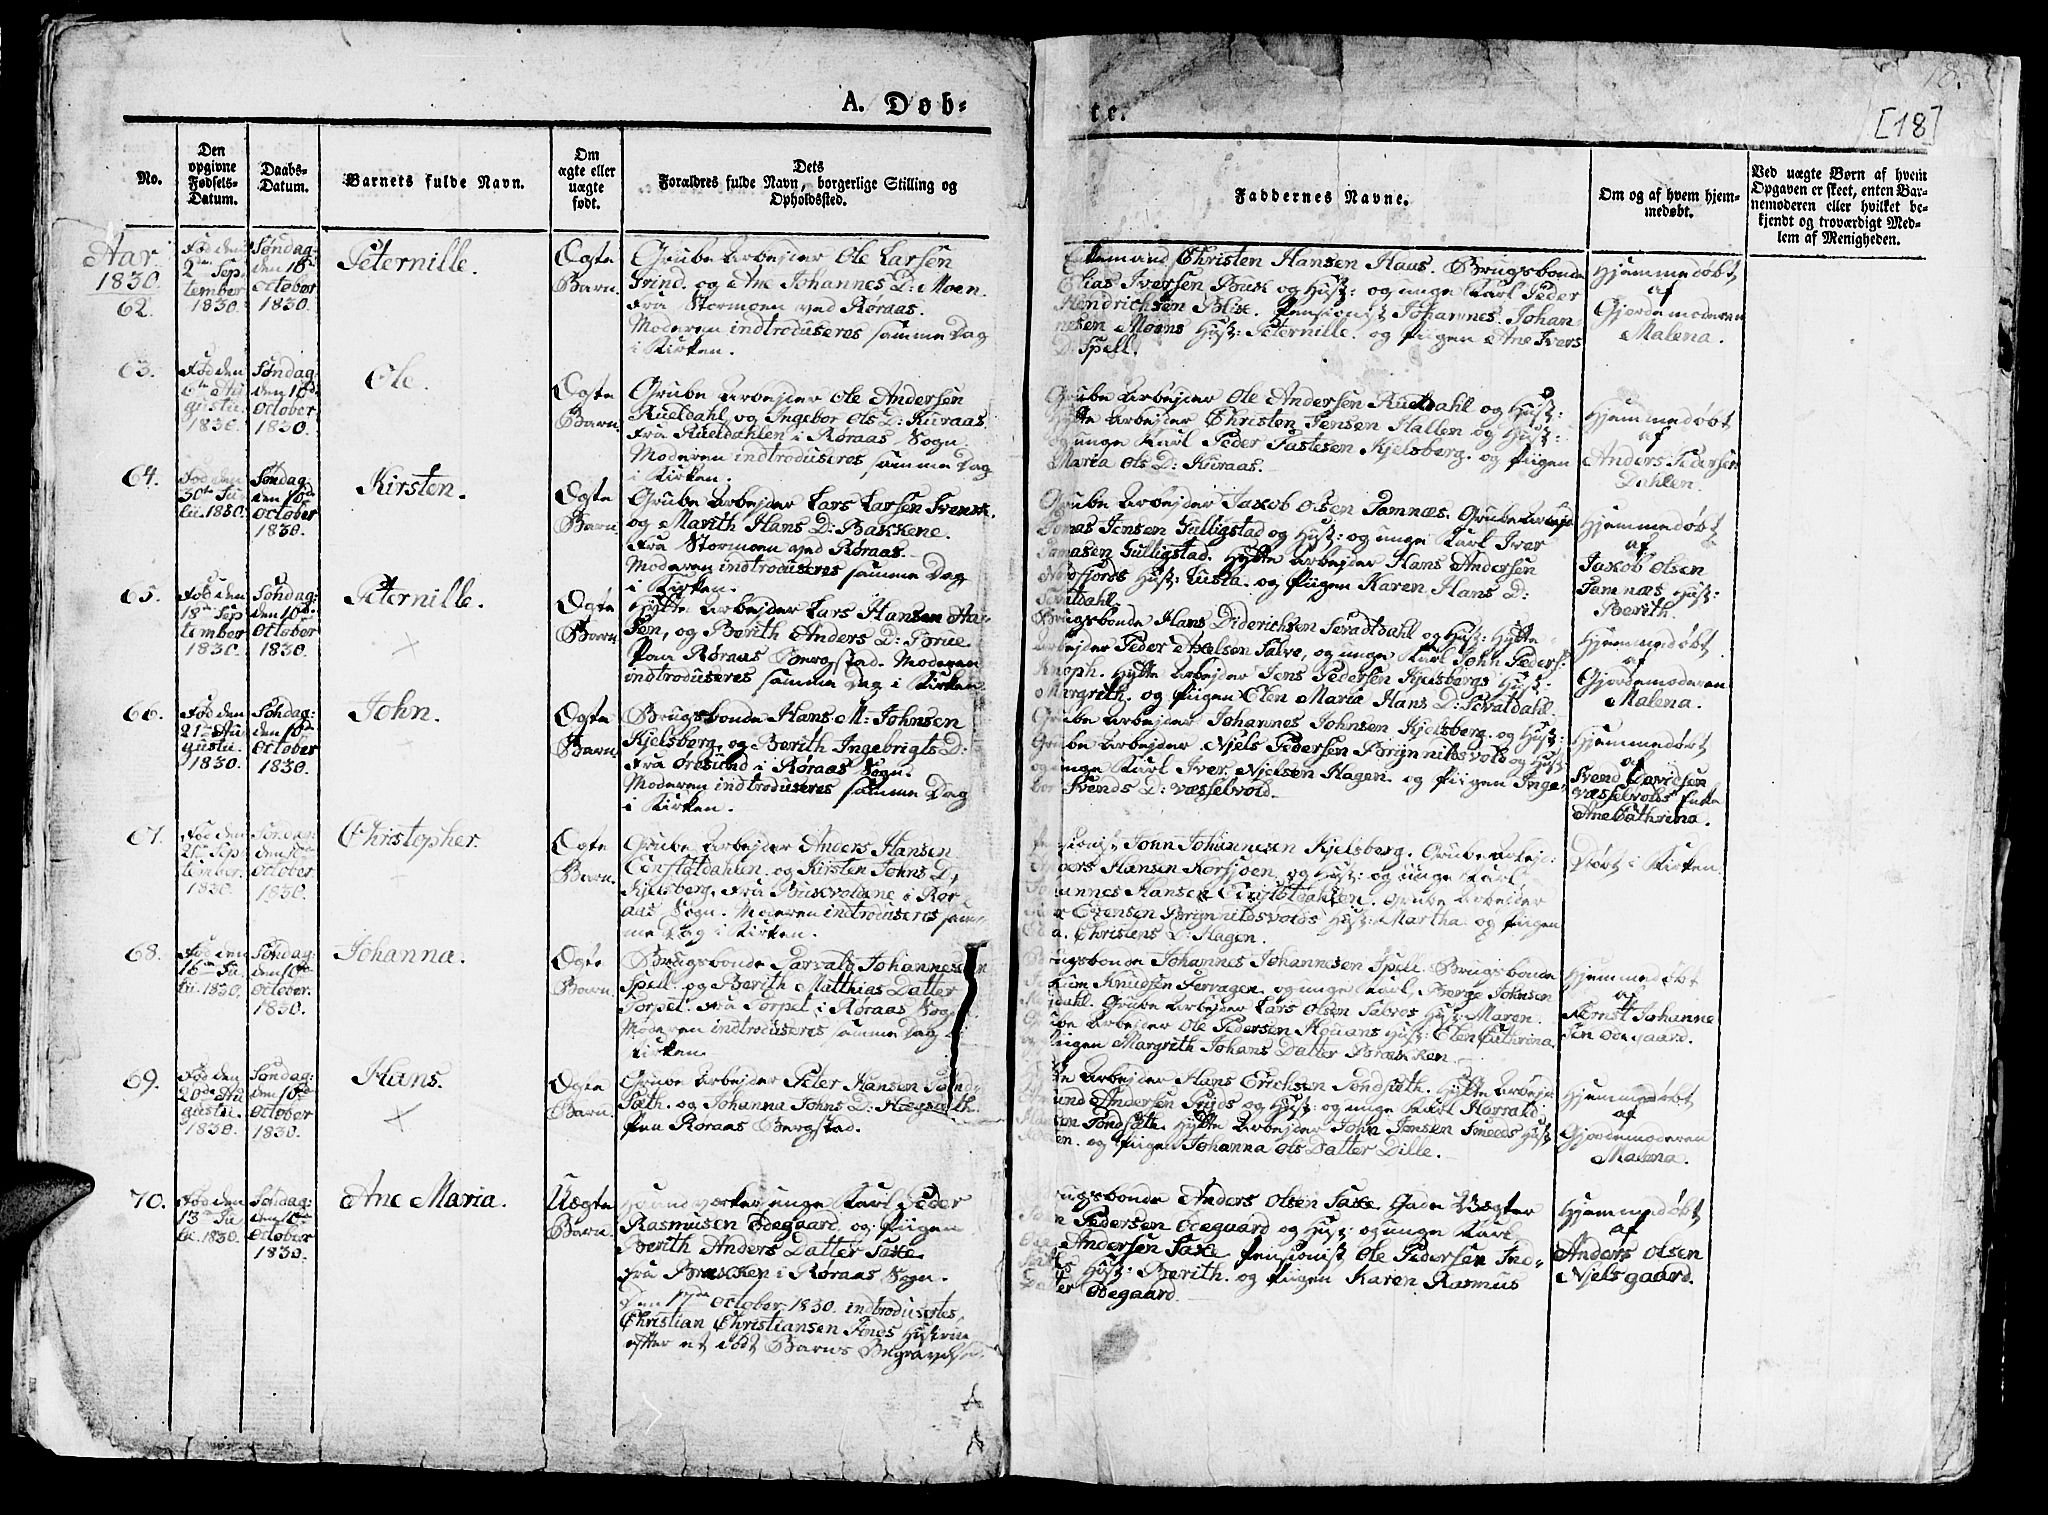 18.
[18]
A. Døb-
te.
No.
Den
opgivne
Fødsels-
Datum.
Daabs-
Datum.
Barnets fulde Navn.
Om
ægte eller
uægte
født.
Dets
Forældres fulde Navn, borgerlige Stilling og
Opholdssted.
Faddernes Navne.
Om og af hvem hjem-
medøbt.
Ved uægte Børn af hvem
Opgaven er skeet, enten Bar-
nemoderen eller hvilket be-
kjendt og troværdigt Med-
lem af Menigheden.
Aar
1830.
62.
Fød den
2den Sep
tember
1830.
Søndag:
den 10de
October
1830.
Peternille.
Ægte
Barn.
Grube Arbejder Ole Larsen
Grind. og Ane Johannes D: Moen.
Fra Stormoen ved Røraas.
Moderen indtroduseres samme Dag
i Kirken.
Enkemand Christen Hansen Haus. Brugsbonde
Elias Iversen Buk og Hust: og unge Karl Peder
Hendrichsen Blix. Pensionist Johannes Johan-
nesen Moens Hust: Peternille. og Piigen Ane Ivers
D: Spell.
Hjemmedøbt
af
Gjordemoderen
Malena.
63.
Fød den
6te Au
gusti
1830.
Søndag:
den 10de
October
1830.
Ole.
Ægte
Barn.
Grube Arbejder Ole Andersen
Rueldahl og Ingebor Ols D: Kuraas.
Fra Rueldahlen i Røraas Sogn.
Moderen indtroduseres samme Dag
i Kirken.
Grube Arbejder Ole Andersen Rueldahl og Hust:
Hytte Arbejder Christen Jensen Hallen og Hust:
og unge Karl Peder Fastesen Kjelsberg. og Piigen
Maria Ols D: Kuraas.
Hjemmedøbt
af
Anders Pedersen
Dahlen.
64.
Fød den
30te Ju
lii. 1830.
Søndag
den 10de
October
1830.
Kirsten.
Ægte
Barn.
Grube Arbejder Lars Larsen Svensk.
og Marith Hans D: Bakkene.
Fra Stormoen ved Røraas.
Moderen indtroduseres samme Dag
i Kirken.
Grube Arbejder Jakob Olsen Tamnæs. Grube Arbejd
Tomas Jensen Gulligstad og Hust: og unge Karl Iver
Tamasen Gulligstad. Hytte Arbejder Hans Andersen
Nordfjords Hust: Lusia. og Piigen Karen Hans D:
Sevatdahl.
Hjemmedøbt
af
Jakob Olsen
Tamnæs Hust:
Berith.
65.
Fød den
18de Sep
tember
1830.
Søndag:
den 10de
October
1830.
Peternille.
Ægte
Barn.
Hytte Arbejder Lars Hansen Aa-
sen, og Berith Anders D: Brue.
Paa Røraas Bergstad. Moderen
indtroduseres samme Dag i Kirken.
Brugsbonde Hans Diderichsen Sevadtdahl og Hust: Hytte-
Arbejder Peder Axelsen Salvo, og unge Karl John Peders:
Knoph. Hytte Arbejder Jens Pedersen Kjelsbergs Hust:
Margrith. og Piigen Elen Maria Hans D: Sevatdahl.
Hjemmedøbt
af
Gjordemoderen
Malena.
66.
Fød den
21de Au
gusti.
1830.
Søndag:
den 10de
October
1830.
John.
Ægte
Barn.
Brugsbonde Hans M: Johnsen
Kjelsberg, og Berith Ingebrigts D:
Fra Øresund i Røraas Sogn.
Moderen indtroduseres samme Dag
i Kirken.
Grube Arbejder Johannes Johnsen Kjelsberg. og Hust:
Grube Arbejder Njels Pedersen Brijnnildsvold og Hust:
og unge Karl Iver Njelsen Hagen. og Piigen Inge-
bor Svends D: Væsselvold.
Hjemmedøbt
af
Svend Davidsen
Væsselvolds Enke
Ane Cathrina.
67.
Fød den
Sep
tember.
1830.
Søndag:
den 10de
October
1830.
Christopher.
Ægte
Barn.
Grube Arbejder Anders Hansen
Engstdahlen. og Kirsten Johns D:
Kjelsberg. Fra Bukvoldene i Rør-
aas Sogn. Moderen indtroduseres sam-
me Dag i Kirken.
Pensionist John Johannesen Kjelsberg. Grube Arbeje:
Anders Hansen Korsjoen. og Hust: og unge Karl
Johannes Hansen Grube Arbejder
Esensen Brijnnildsvolds Hust: Martha. og Piigen
Christens D: Hagen.
Døbt i Kirken.
68.
Fød den
16de Ju
lii. 1830.
Søndag:
den 10de
October.
1830.
Johanna.
Ægte
Barn.
Brugsbonde Parvald Johannesen
Spell. og Berith Matthias Datter
Torpet. Fra Torpet, i Røraas Sogn
Moderen indtroduseres samme Dag i
Kirken.
Brugsbonde Johannes Johannesen Spell. Brugsbonde
Knudsen Ferragen. og unge Karl, Børge Johnsen
Grube Arbejder Lars Olsen Salvos Hust: Maren.
Grube Arbejder Ole Pedersen Hust: Elen Cathrina.
og Piigen Margrith Johans Datter Brækken.
Hjemmedøbt
af
Ernst Johanne
sen Odegaard.
69.
Fød den
20de Au
gusti.
1830.
Søndag:
den 10de
October
1830.
Hans.
Ægte
Barn.
Grube Arbejder Peter Hansen Tønd-
sæth. og Johanna Johns D: Hægsæth.
Paa Røraas Bergstad.
Arbejder Hans Erichsen Tondsæth. Hytte Arbeje
Andersen og Hust: og unge Karl Harrald
Hansen Tondsæth. Hytte Arbejder John Jonsen Smeeds Hust
og Piigen Johanna Ols Datter Dille.
Hjemmedøbt
af
Gjordemoderen
Malena.
70.
Fød den
13de Ju
lii. 1830.
Søndag:
den 10de
October
1830.
Ane Maria.
Uægte
Barn.
Haandværker unge Karl Peder
Rasmusen Ødegaard, og Piigen
Berith Anders Datter Saxe.
Fra Brækken i Røraas Sogn.
Den 17de October 1830. indtroduseres,
Christian Christiansen Finds Hustrue
efter et dødt Barns Begravelse.
Brugsbonde Anders Olsen Saxe. Gade Vægter
Pedersen Ødegaard og Hust: og unge Karl,
Andersen Saxe. Pensionist Ole Pedersen Ind-
Hust: Berith. og Piigen Karen Rasmus
Datter Ødegaard.
Hjemmedøbt
af
Anders Olsen
Njelsgaard.